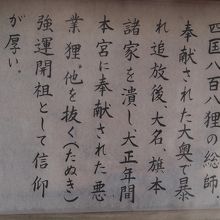 四国八百八狸の総師
奉献された大奥で暴
れ追放後大名、旗本
諸家を潰し大正年間
本宮に奉献された悪
業狸。他を抜く(たぬき)
強運開祖として信仰
が厚い。